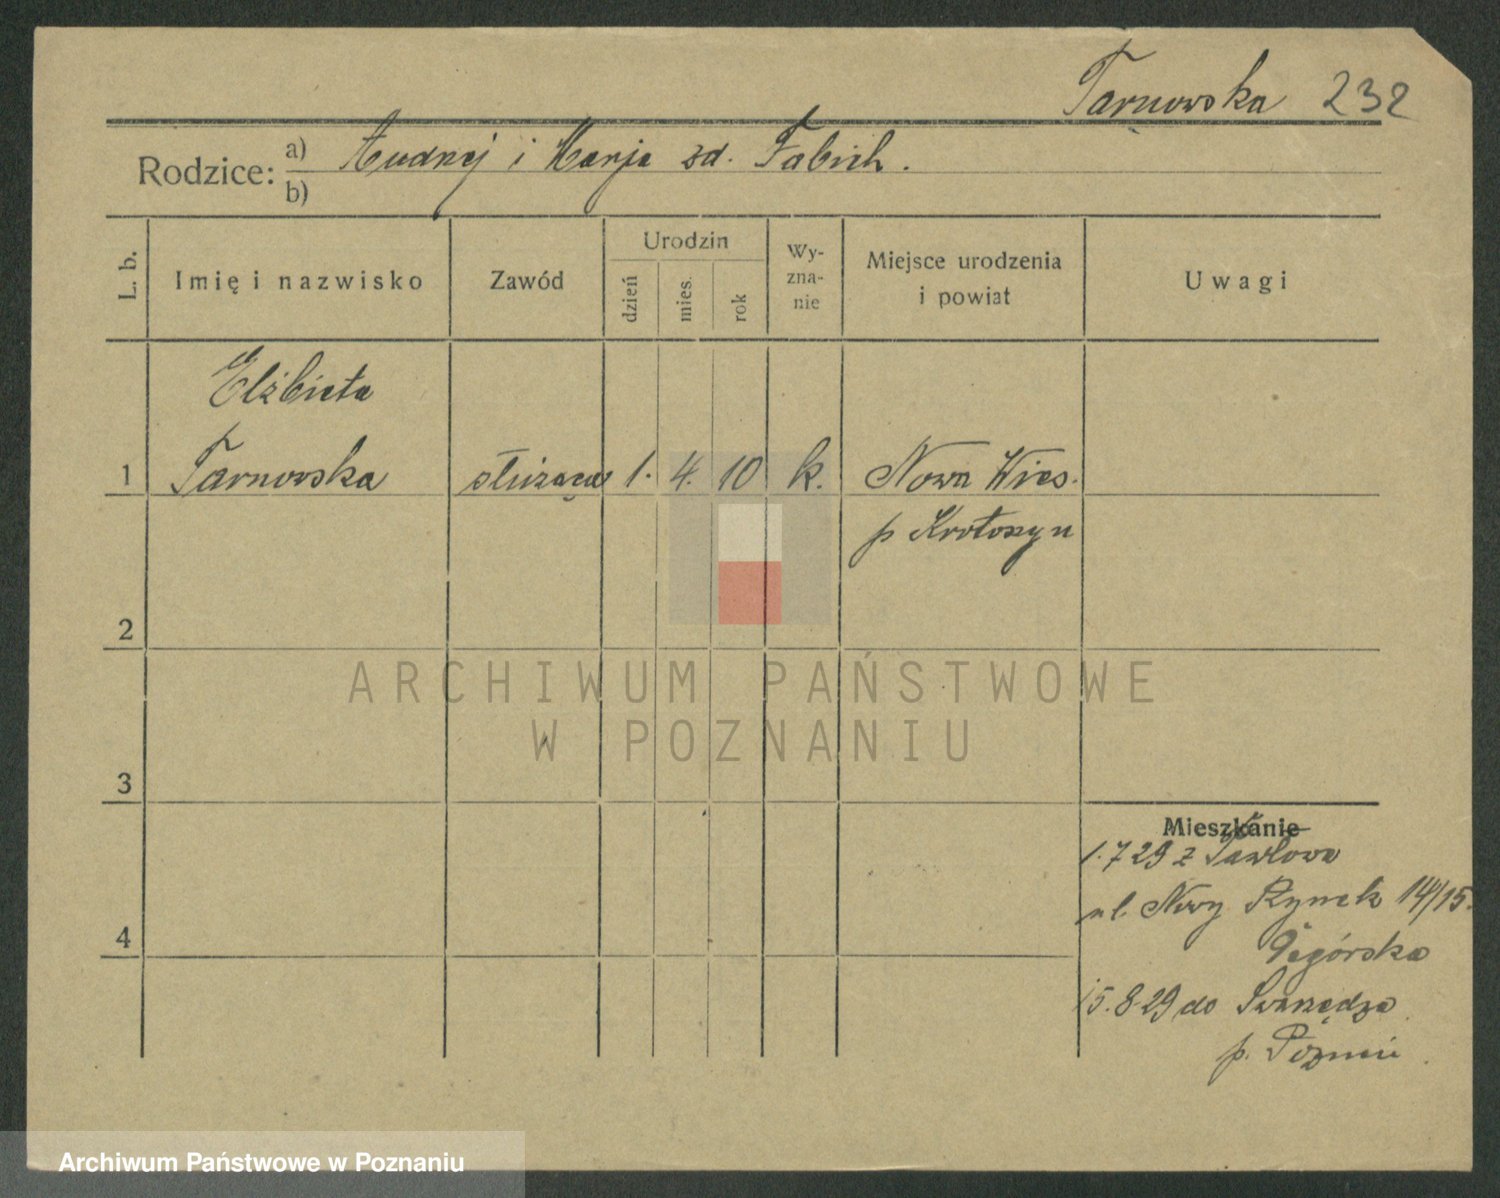 Tarnowska 232
Rodzice: a) Andrzej i Marja zd. Fabich.
b)
L. b.
Imię i nazwisko
Zawód
Urodzin
dzień
mies.
rok
Wy-
zna-
nie
Miejsce urodzenia
i powiat
Uwagi
Elżbieta
1 Tarnowska służąca 1. 4. 10 k. Nowa Wieś.
p Krotoszyn
2
ARCHIWUM PAŃSTWOWE
W POZNANIU
3
Mieszkanie
1.7 29 z Pawłowa
ul. Nowy Rynek 14/15.
4
15.8.29 do Swarzędza
p. Poznań
Archiwum Państwowe w Poznaniu